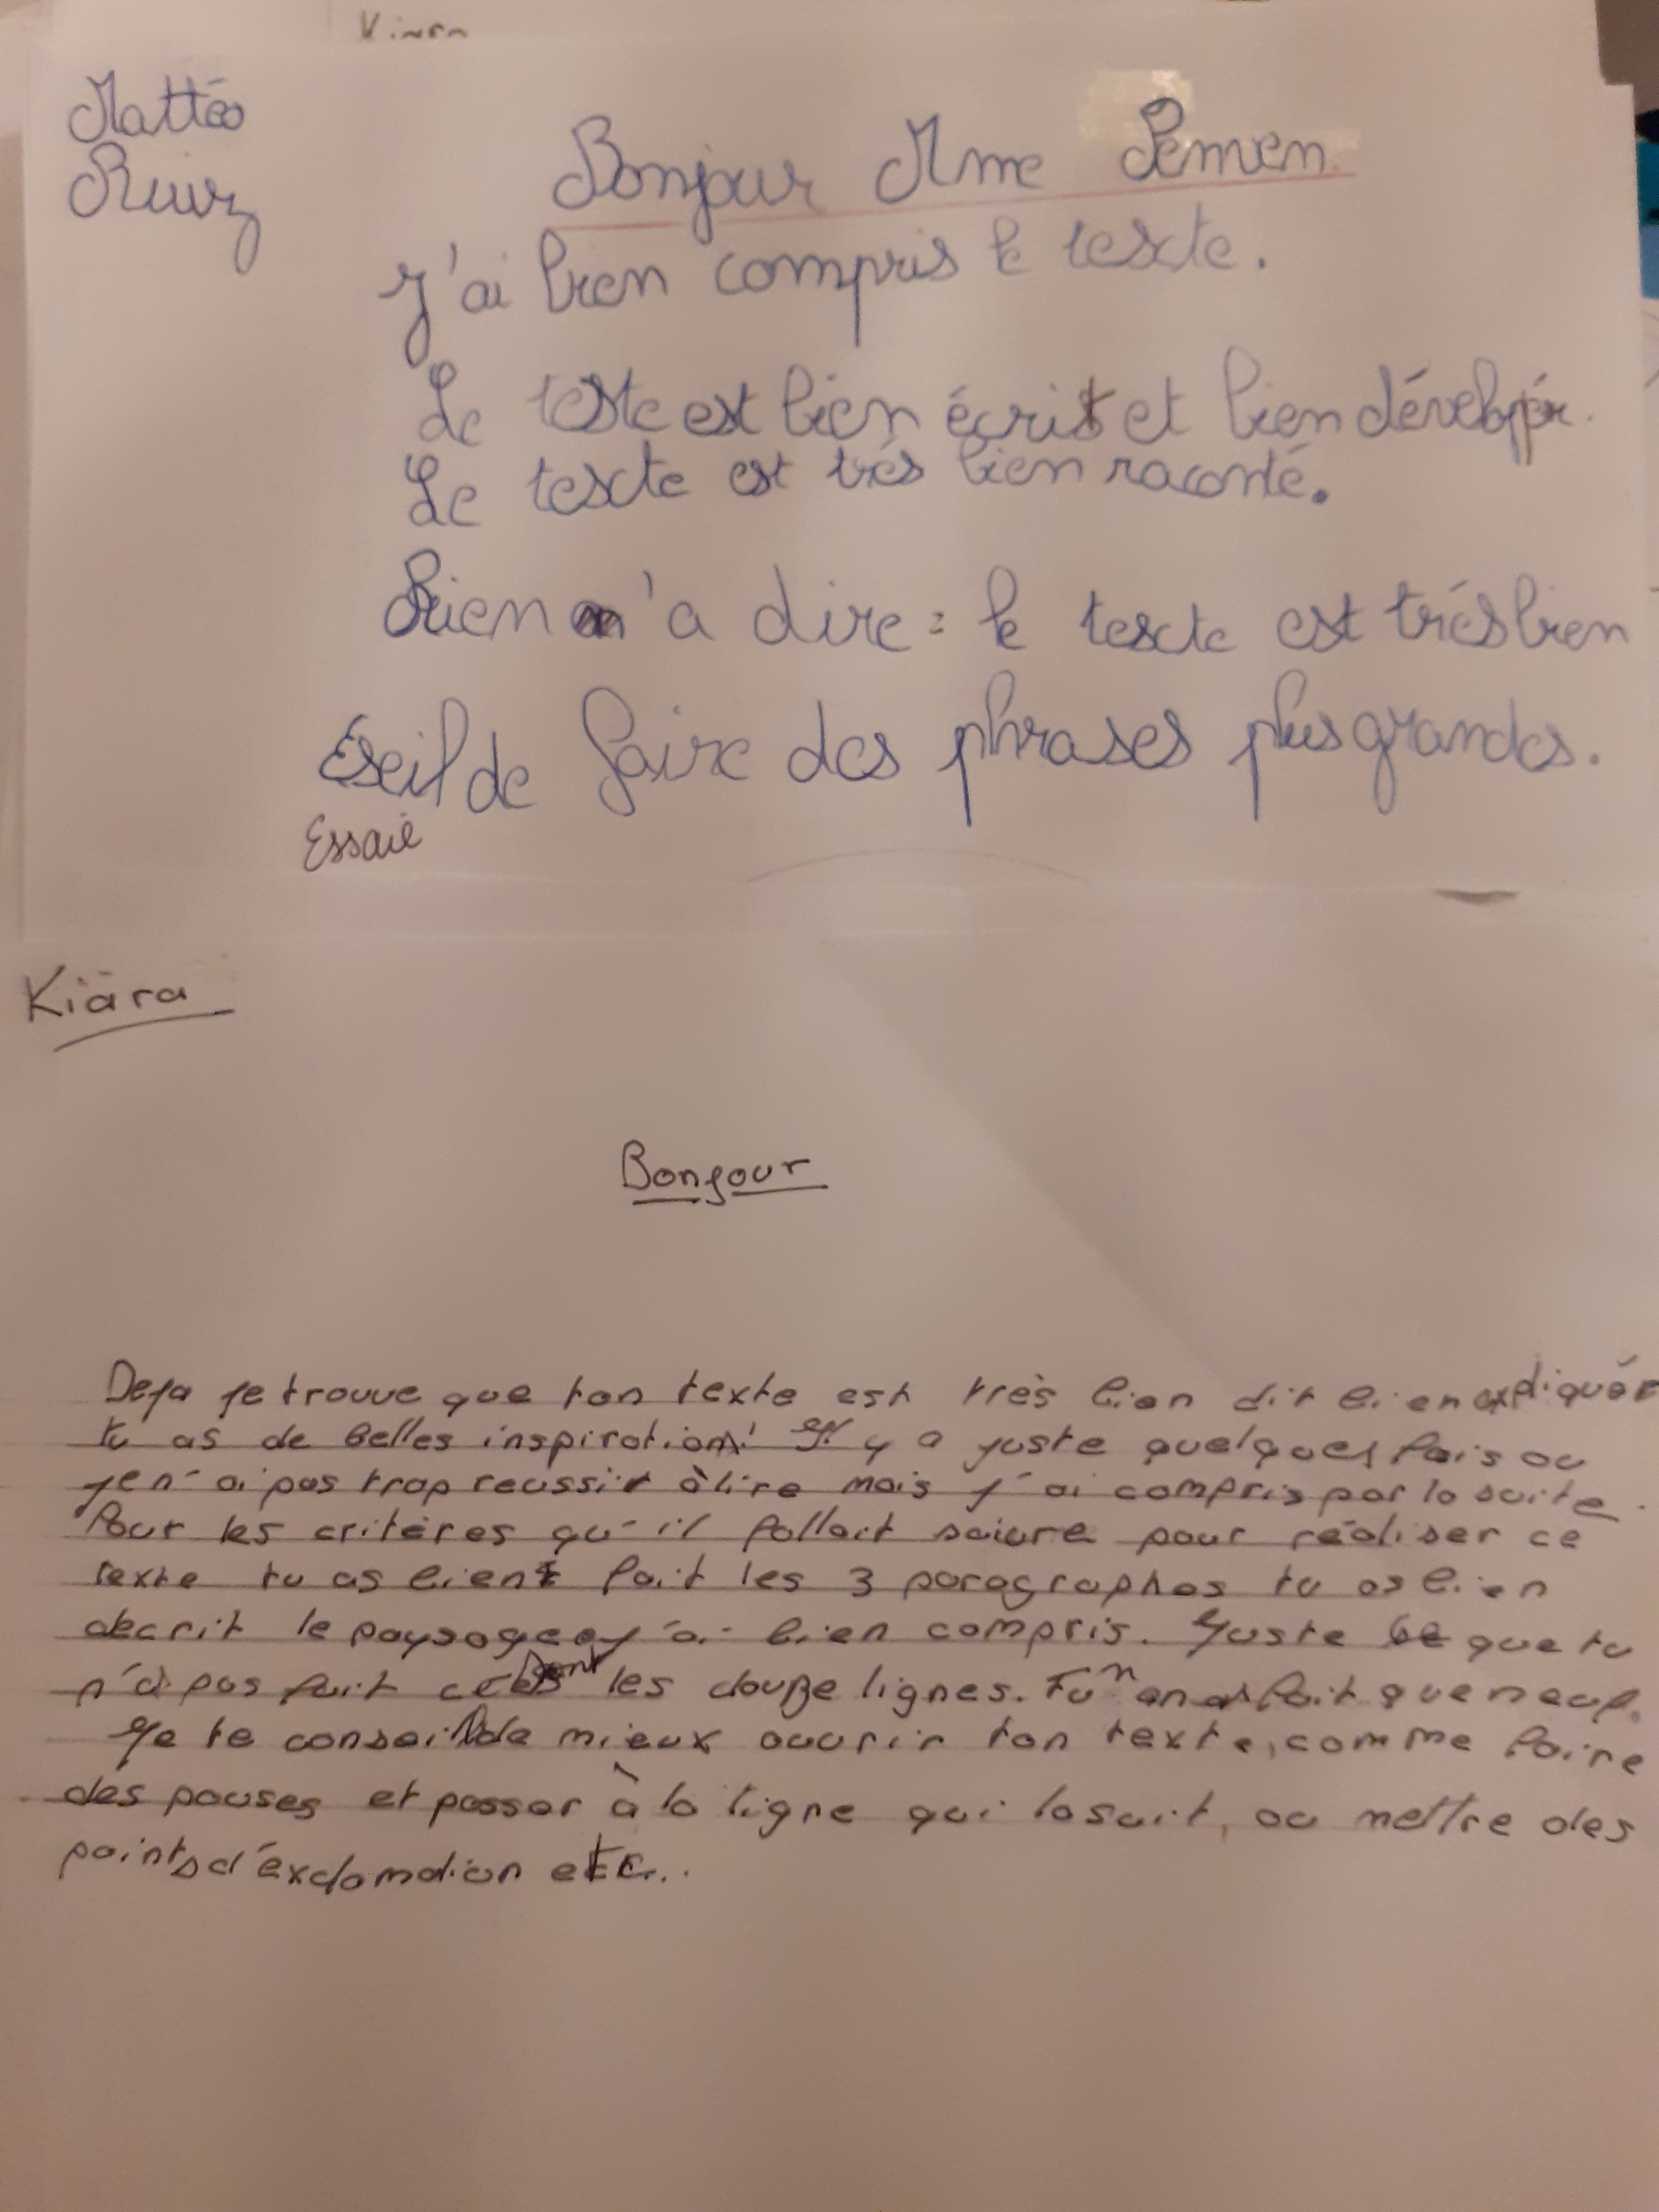 Kiara
Mattéo
Ruiz
Bonjour Mme Pemen
J'ai bien compris le texte.
Le texte est bien écrit et bien dévelopér.
Le texte est trés bien raconté.
Rien n'a dire : le texte est trés bien
Eseil de faire des phrases plus grandes.
Essaie
Kiara
Bonjour
Deja je trouve que ton texte est très bien dit bien expliquér
tu as de belles inspiration! Il y a juste quelques fois ou
je n'ai pas trop reussir à lire mais j'ai compris par la suite.
Pour les critères qu'il fallait suivre pour réaliser ce
texte tu as bient fait les 3 paragraphes tu as bien
decrit le paysage j'ai bien compris. Juste que tu
n'a pas fait les douze lignes. Tu n en as fait que neuf.
Je te conseil de mieux ouvrir ton texte, comme faire
des pauses et passer à la ligne qui la suit, ou mettre des
points d'éxclamation etc...